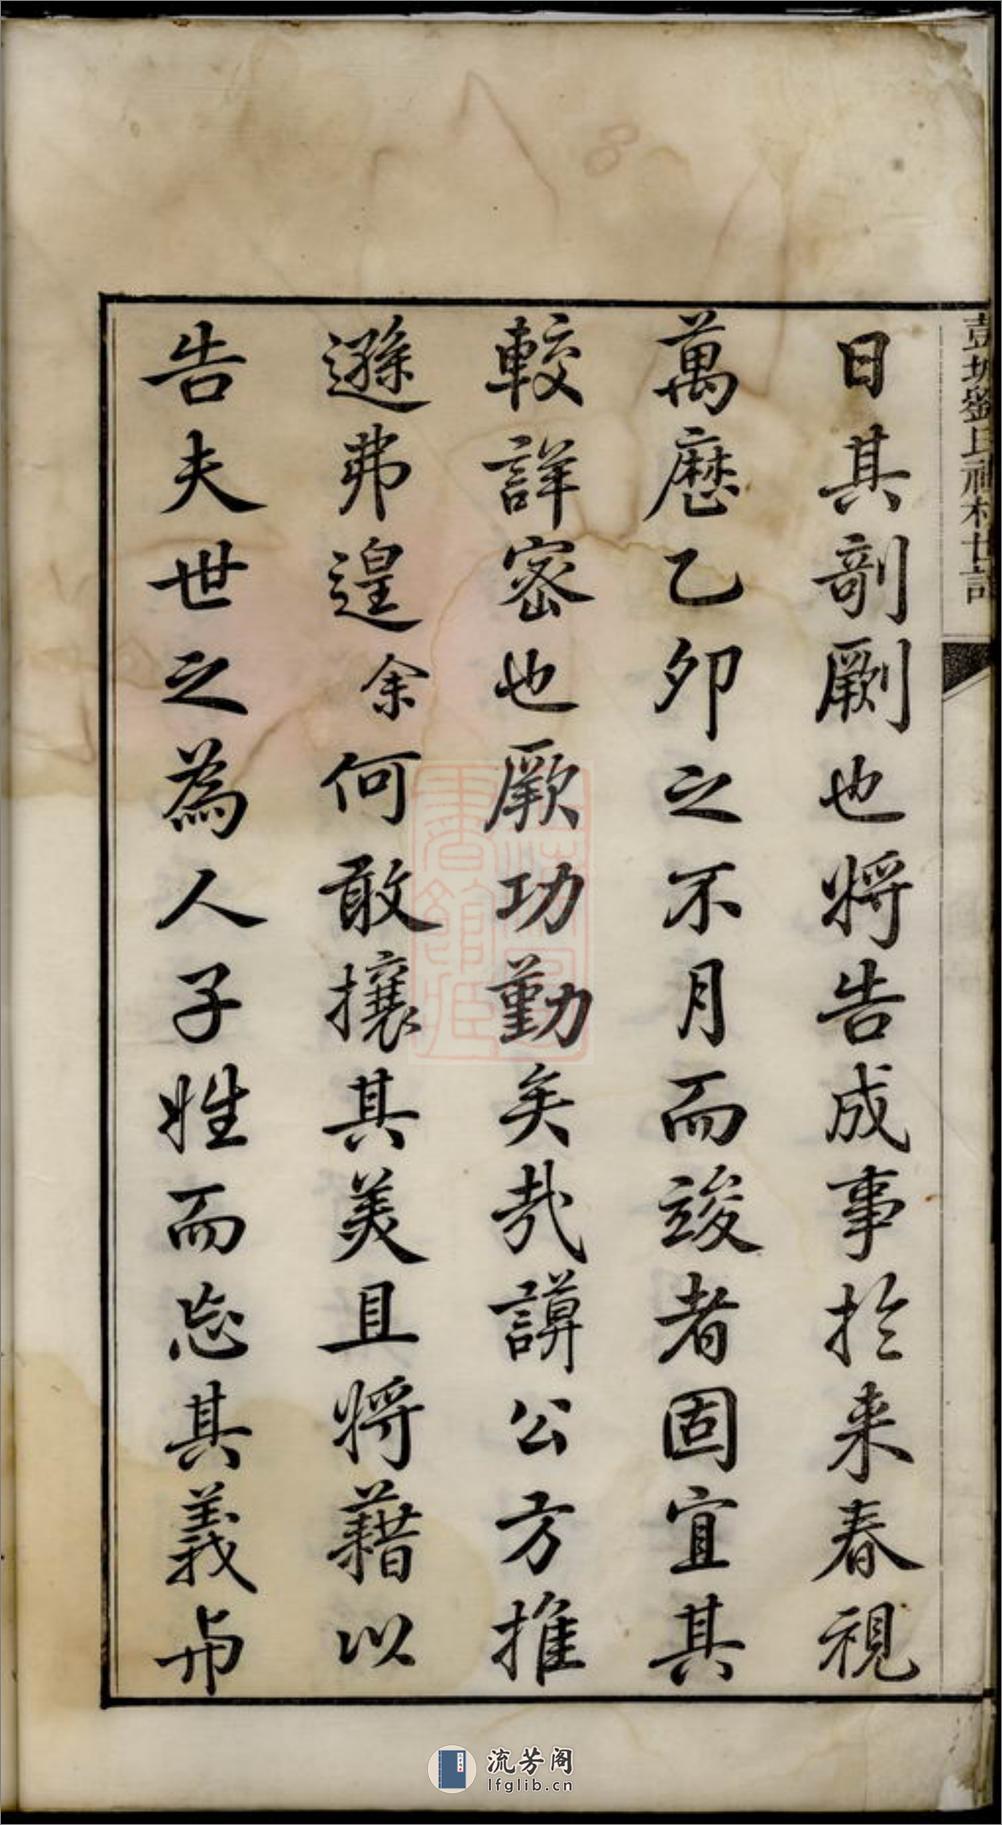 日其剞劂也將告成事於来春視
萬歴乙卯之不月而竣者固宜其
較詳密也厥功勤矣哉謨公方推
遜弗遑余何敢攘其美且將藉以
告夫世之為人子姓而忘其義與
流芳阁
lfglib.cn